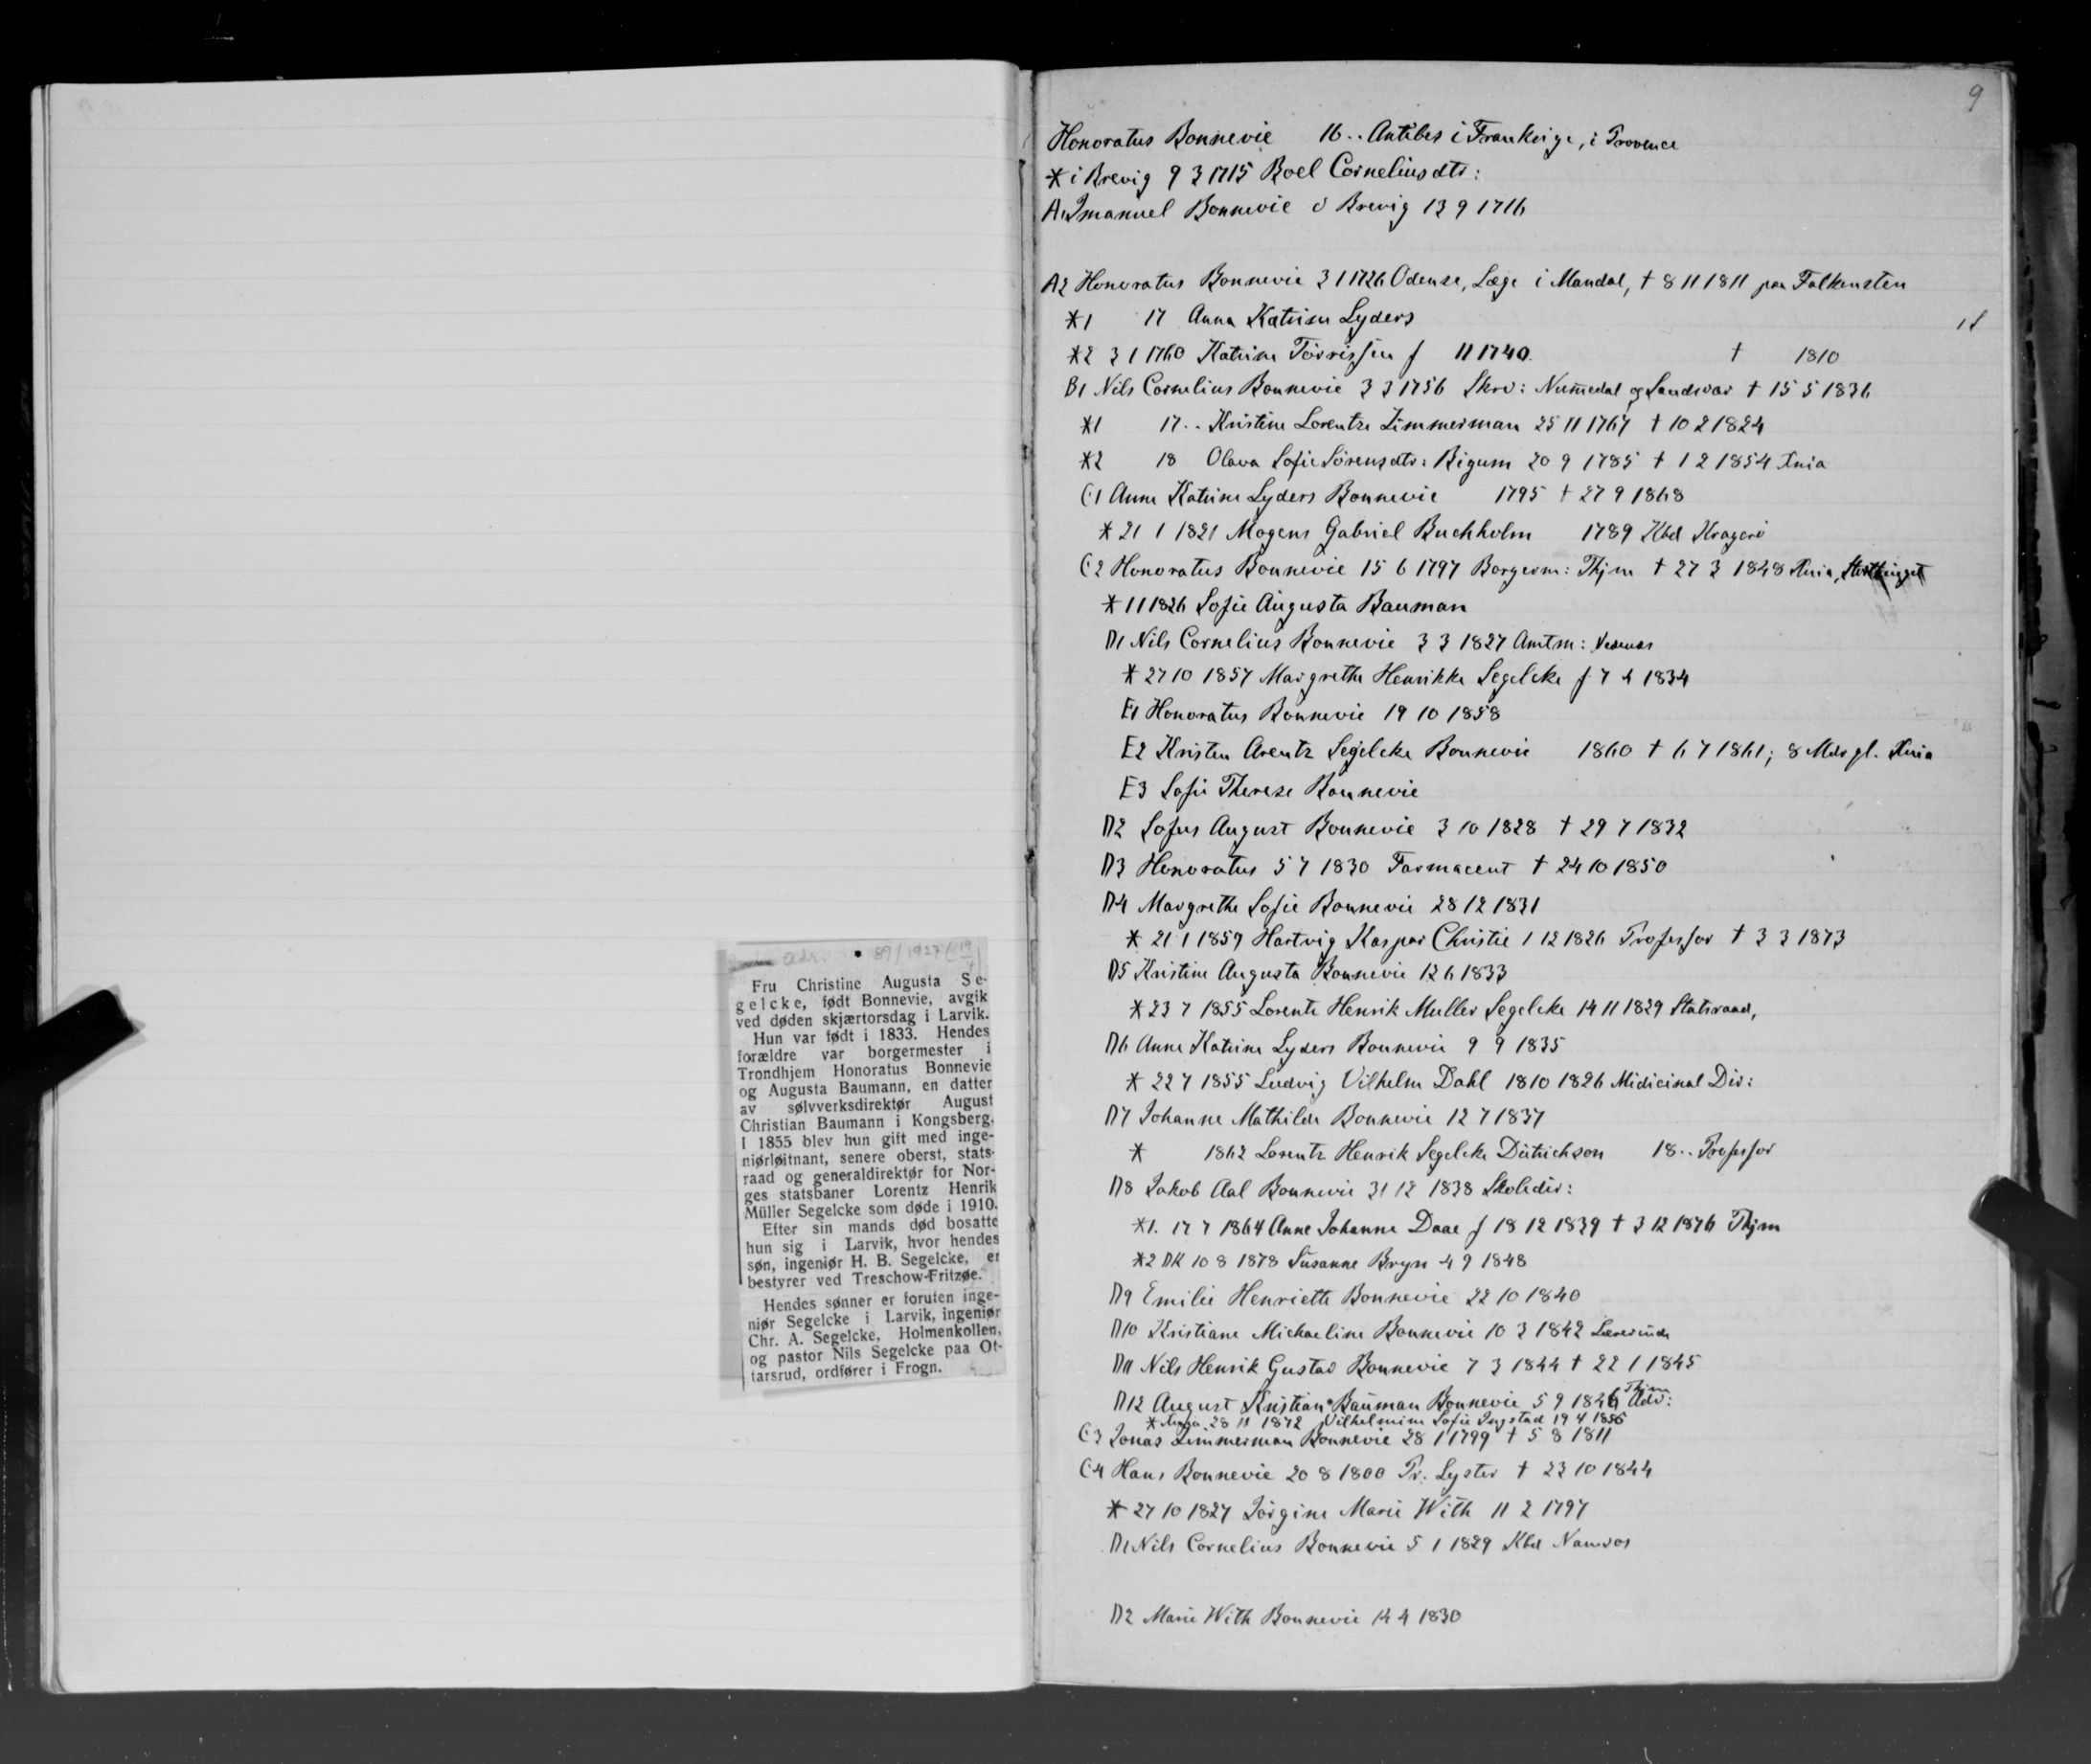 89/1927 (19/4)
Fru Christine Augusta Se-
gelcke, født Bonnevie, avgik
ved døden skjærtorsdag i Larvik.
Hun var født i 1833. Hendes
forældre var borgermester i
Trondhjem Honoratus Bonnevie
og Augusta Baumann, en datter
av sølvverksdirektør August
Christian Baumann i Kongsberg.
I 1855 blev hun gift med inge-
niørløitnant, senere oberst, stats-
raad og generaldirektør for Nor-
ges statsbaner Lorentz Henrik
Müller Segelcke som døde i 1910.
Efter sin mands død bosatte
hun sig i Larvik, hvor hendes
søn, ingeniør H. B. Segelcke, er
bestyrer ved Treschow-Fritzøe.
Hendes sønner er foruten inge-
niør Segelcke i Larvik, ingeniør
Chr. A. Segelcke, Holmenkollen,
og pastor Nils Segelcke paa Ot-
tarsrud, ordfører i Frogn.
9
Honoratus Bonnevie 16.. Antibes i Frankrige, i Provence
* i Brevig 9 3 1715 Boel Corneliusdtr:
A1 Imanuel Bonnevie d Brevig 13 9 1716
A2 Honoratus Bonnevie 3 1 1726 Odense, Læge i Mandal, † 8 11 1811 paa Falkensten
*1 17 Anna Katrine Lyders
*2 3 1 1760 Katrine Törrissen f 11 1740. † 1810
B1 Nils Cornelius Bonnevie 3 3 1756 Skrv: Numedal og Sandsvær † 15 5 1836
*1 17.. Kristine Lorentze Zimmerman 25 11 1767 † 10 2 1824
*2 18 Olava Sofie Sörensdtr: Bigum 20 9 1785 † 1 2 1854 Knia
C1 Anne Katrine Lyders Bonnevie 1795 † 27 9 1868
* 21 1 1821 Mogens Gabriel Buchholm 1789 Kbd Kragerö
C2 Honoratus Bonnevie 15 6 1797 Borgerm: Thjm † 27 3 1848 Knia, Storthinget
* 1 1 1826 Sofie Augusta Bauman
D1 Nils Cornelius Bonnevie 3 3 1827 Amtm: Nedenæs
* 27 10 1857 Margrethe Henrikke Segelcke f 7 4 1834
E1 Honoratus Bonnevie 19 10 1858
E2 Kristen Arentz Segelcke Bonnevie 1860 † 6 7 1861; 8 Mdr gl. Knia
E3 Sofie Therese Bonnevie
D2 Sofus August Bonnevie 3 10 1828 † 29 7 1832
D3 Honoratus 5 7 1830 Farmaceut † 24 10 1850
D4 Margrethe Sofie Bonnevie 28 12 1831
* 21 1 1859 Hartvig Kaspar Christie 1 12 1826 Professor † 3 3 1873
D5 Kristine Augusta Bonnevie 12 6 1833
* 23 7 1855 Lorentz Henrik Muller Segelcke 14 11 1829 Statsraad,
D6 Anne Katrine Lyders Bonnevie 9 9 1835
* 22 7 1855 Ludvig Vilhelm Dahl 18 10 1826 Midicinal Dir:
D7 Johanne Mathilde Bonnevie 12 7 1837
* 1862 Lorentz Henrik Segelcke Dietrichson 18.. Professor
D8 Jakob Aal Bonnevie 31 12 1838 Skoledir:
*1. 17 7 1864 Anne Johanne Daae f 18 12 1839 † 3 12 1876 Thjm
*2 DK 10 8 1878 Susanne Bryn 4 9 1848
D9 Emilie Henriette Bonnevie 22 10 1840
D10 Kristiane Michaeline Bonnevie 10 3 1842 Lærerinde
D11 Nils Henrik Gustav Bonnevie 7 3 1844 † 22 1 1845
D12 August Kristian Bauman Bonnevie 5 9 1846 Thjm Adv:
* 28 11 1872 Vilhelmine Sofie Ingstad 19 4 1856
C3 Jonas Zimmerman Bonnevie 28 1 1799 † 5 8 1811
C4 Hans Bonnevie 20 8 1800 Pr: Lyster † 23 10 1844
* 27 10 1827 Jörgine Marie With 11 2 1797
D1 Nils Cornelius Bonnevie 5 1 1829 Kbd Namsos
D2 Marie With Bonnevie 14 4 1830